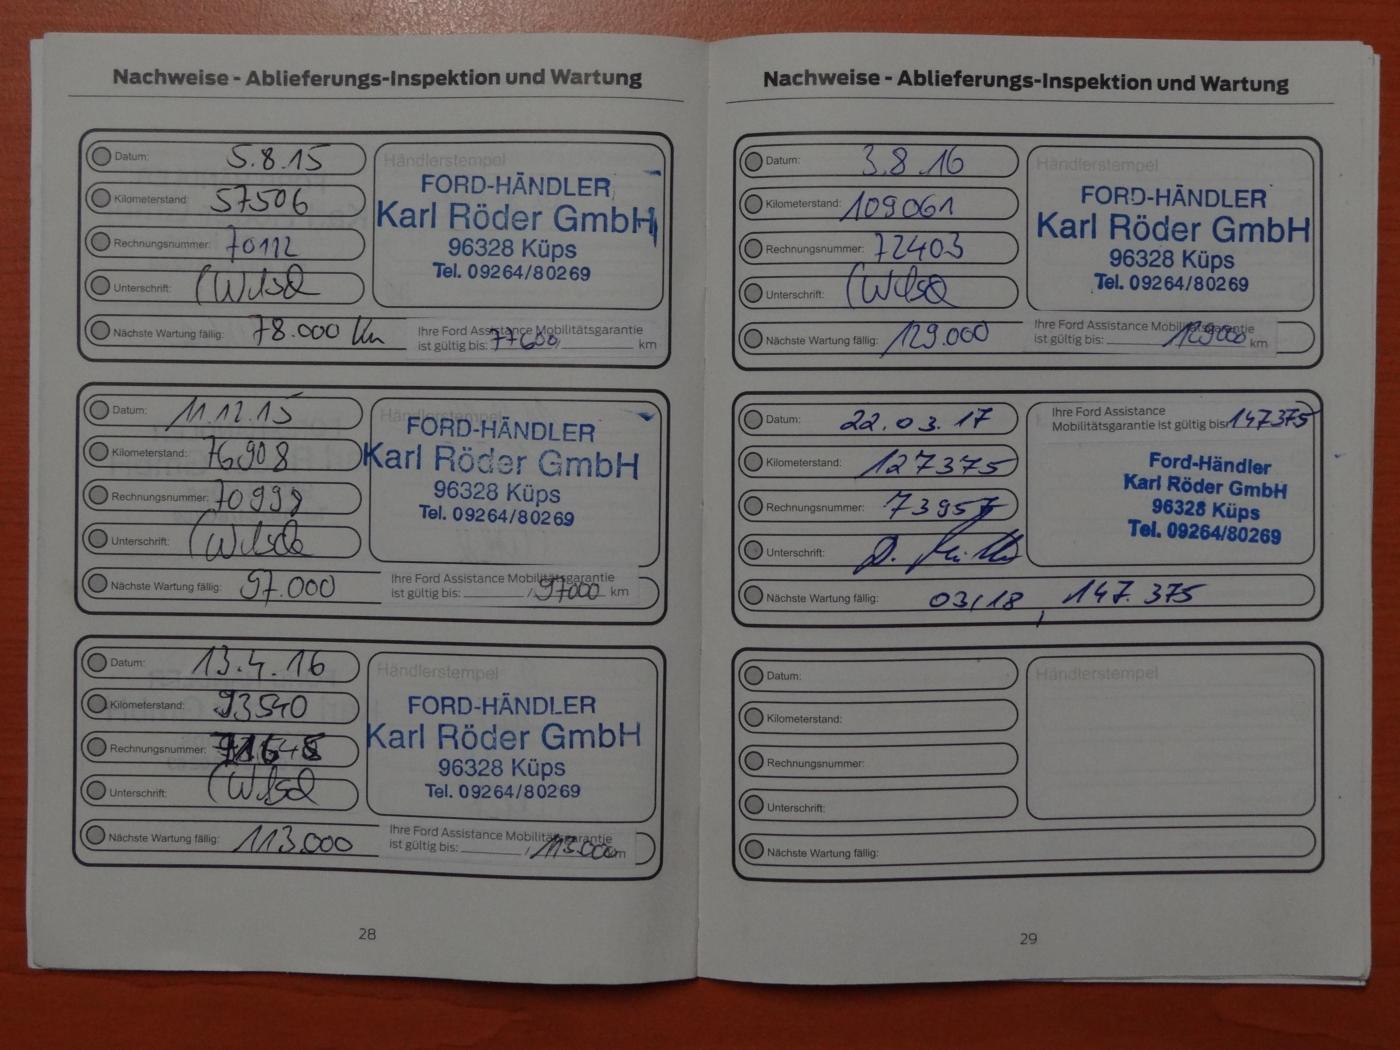 Nachweise - Ablieferungs-Inspektion und Wartung
Datum: 5.8.15
Kilometerstand: 57506
Rechnungsnummer: 70112
Unterschrift:
Nächste Wartung fällig: 78.000 km
Händlerstempel
FORD-HÄNDLER
Karl Röder GmbH
96328 Küps
Tel. 09264/80269
Ihre Ford Assistance Mobilitätsgarantie
ist gültig bis: 77600 km
Datum: 11.12.15
Kilometerstand: 76908
Rechnungsnummer: 70998
Unterschrift:
Nächste Wartung fällig: 97.000
Händlerstempel
FORD-HÄNDLER
Karl Röder GmbH
96328 Küps
Tel. 09264/80269
Ihre Ford Assistance Mobilitätsgarantie
ist gültig bis: / 97000 km
Datum: 13.4.16
Kilometerstand: 93540
Rechnungsnummer:
Unterschrift:
Nächste Wartung fällig: 113.000
Händlerstempel
FORD-HÄNDLER
Karl Röder GmbH
96328 Küps
Tel. 09264/80269
Ihre Ford Assistance Mobilitätsgarantie
ist gültig bis: / 113.000 km
28
Nachweise - Ablieferungs-Inspektion und Wartung
Datum: 3.8.16
Kilometerstand: 109061
Rechnungsnummer: 72403
Unterschrift:
Nächste Wartung fällig: 129.000
Händlerstempel
FORD-HÄNDLER
Karl Röder GmbH
96328 Küps
Tel. 09264/80269
Ihre Ford Assistance Mobilitätsgarantie
ist gültig bis: 129000 km
Datum: 22.03.17
Kilometerstand: 127375
Rechnungsnummer: 73957
Unterschrift:
Nächste Wartung fällig: 03/18, 147.375
Ihre Ford Assistance
Mobilitätsgarantie ist gültig bis: 147375
Ford-Händler
Karl Röder GmbH
96328 Küps
Tel. 09264/80269
Datum:
Kilometerstand:
Rechnungsnummer:
Unterschrift:
Nächste Wartung fällig:
Händlerstempel
29